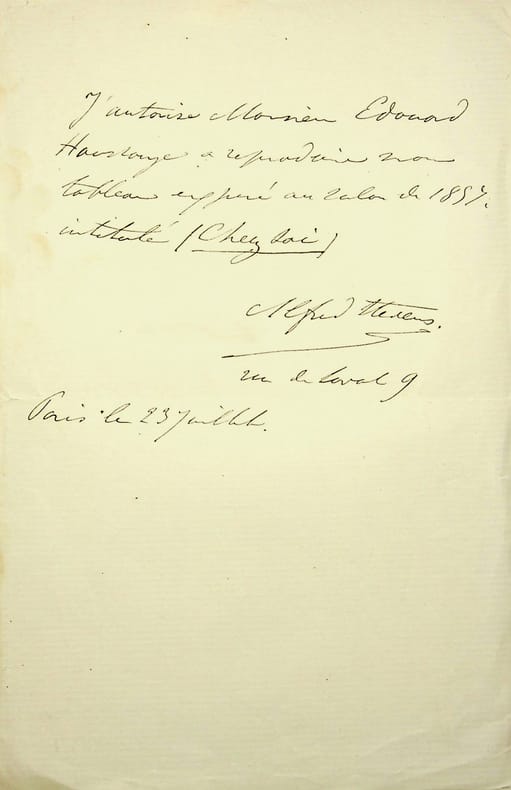 J'autorise Monsieur Edouard
a reproduire mon
tableau exposé au salon de 1857.
intitulé (Chez soi)
Alfred Stevens.
rue de Laval 9
Paris le 23 Juillet.